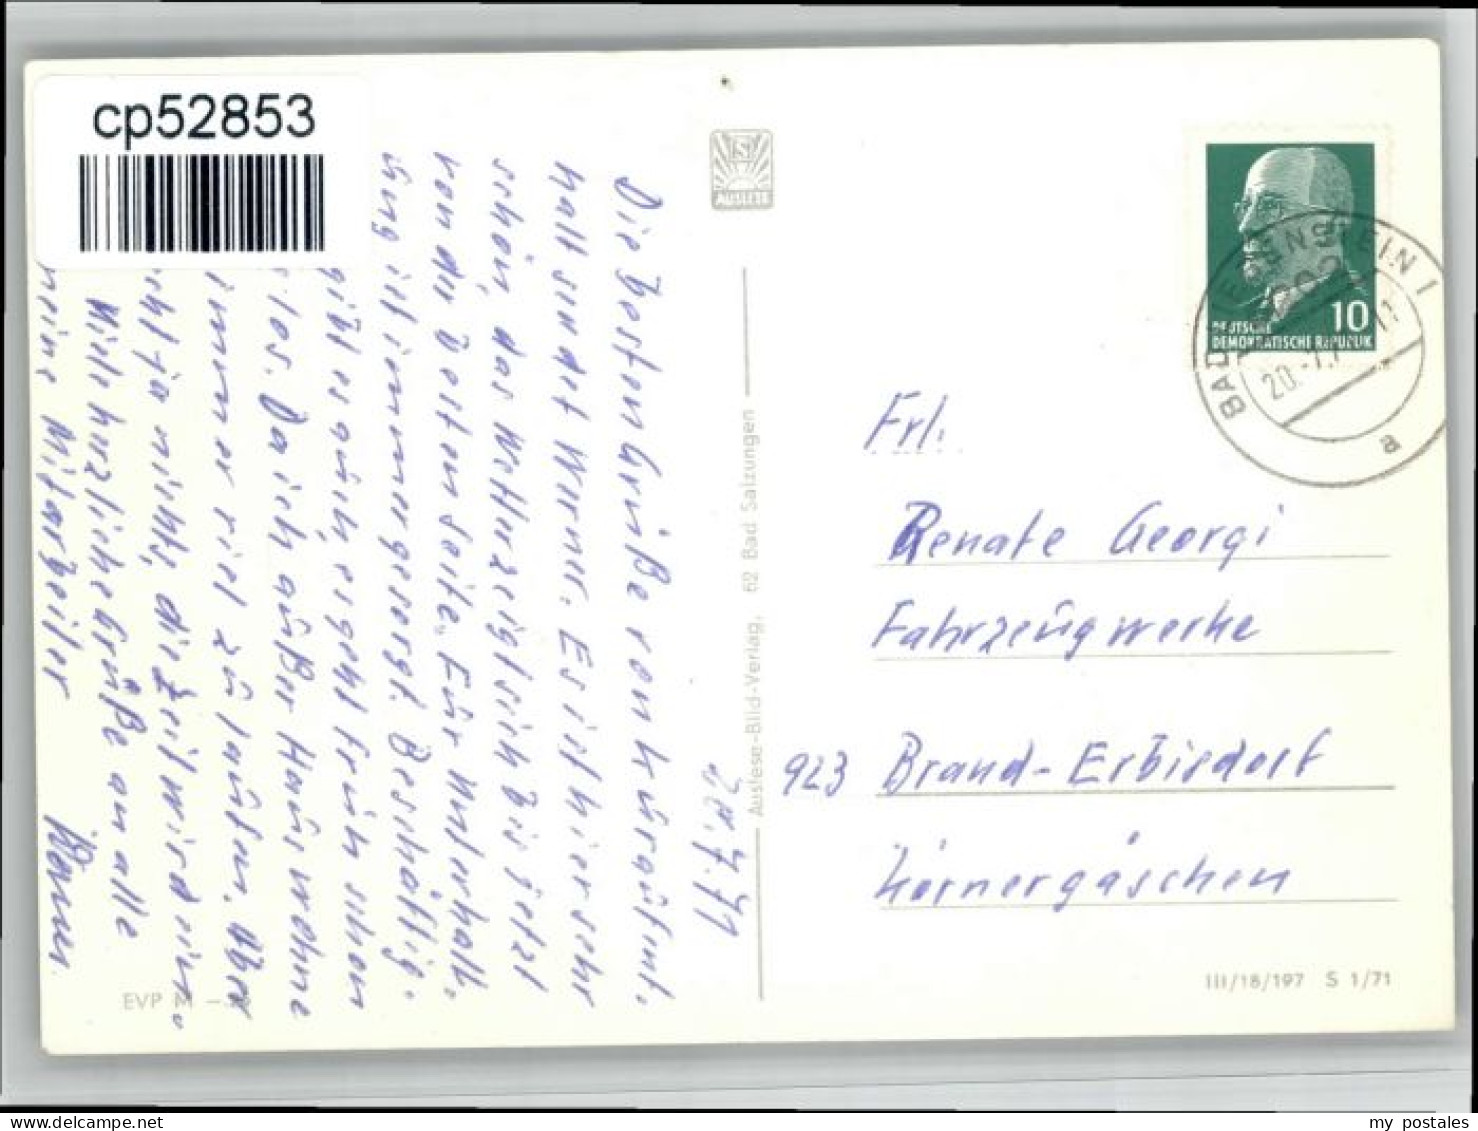 cp52853
AUSLESE
20.7.71
Die besten Grüße vom Kuraufent.
halt sendet Werner. Es ist hier sehr
schön, das Wetter zeigt sich bis jetzt
von der besten Seite. Für Unterhalt.
ung ist immer gesorgt. Beschäftig.
gibt es auch, es geht früh schon
los. Da ich außer Haus wohne
immer viel zu laufen. Aber
ja nichts, die Zeit wird ein..
Viele herzliche Grüße an alle
meine Mitarbeiter Werner
Auslese-Bild-Verlag, 62 Bad Salzungen
EVP M
DEUTSCHE
DEMOKRATISCHE REPUBLIK
10
BAD LIEBENSTEIN 1
20.-7.7
a
Frl.
Renate Georgi
Fahrzeugwerke
923 Brand-Erbisdorf
Körnergäschen
III/18/197 S 1/71
my postales